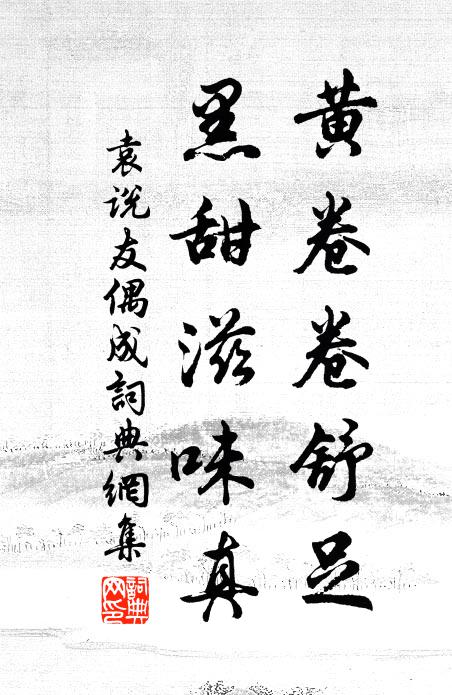 黄卷卷舒足
黑甜滋味真
袁说友偶成詞典網集
詞典網印